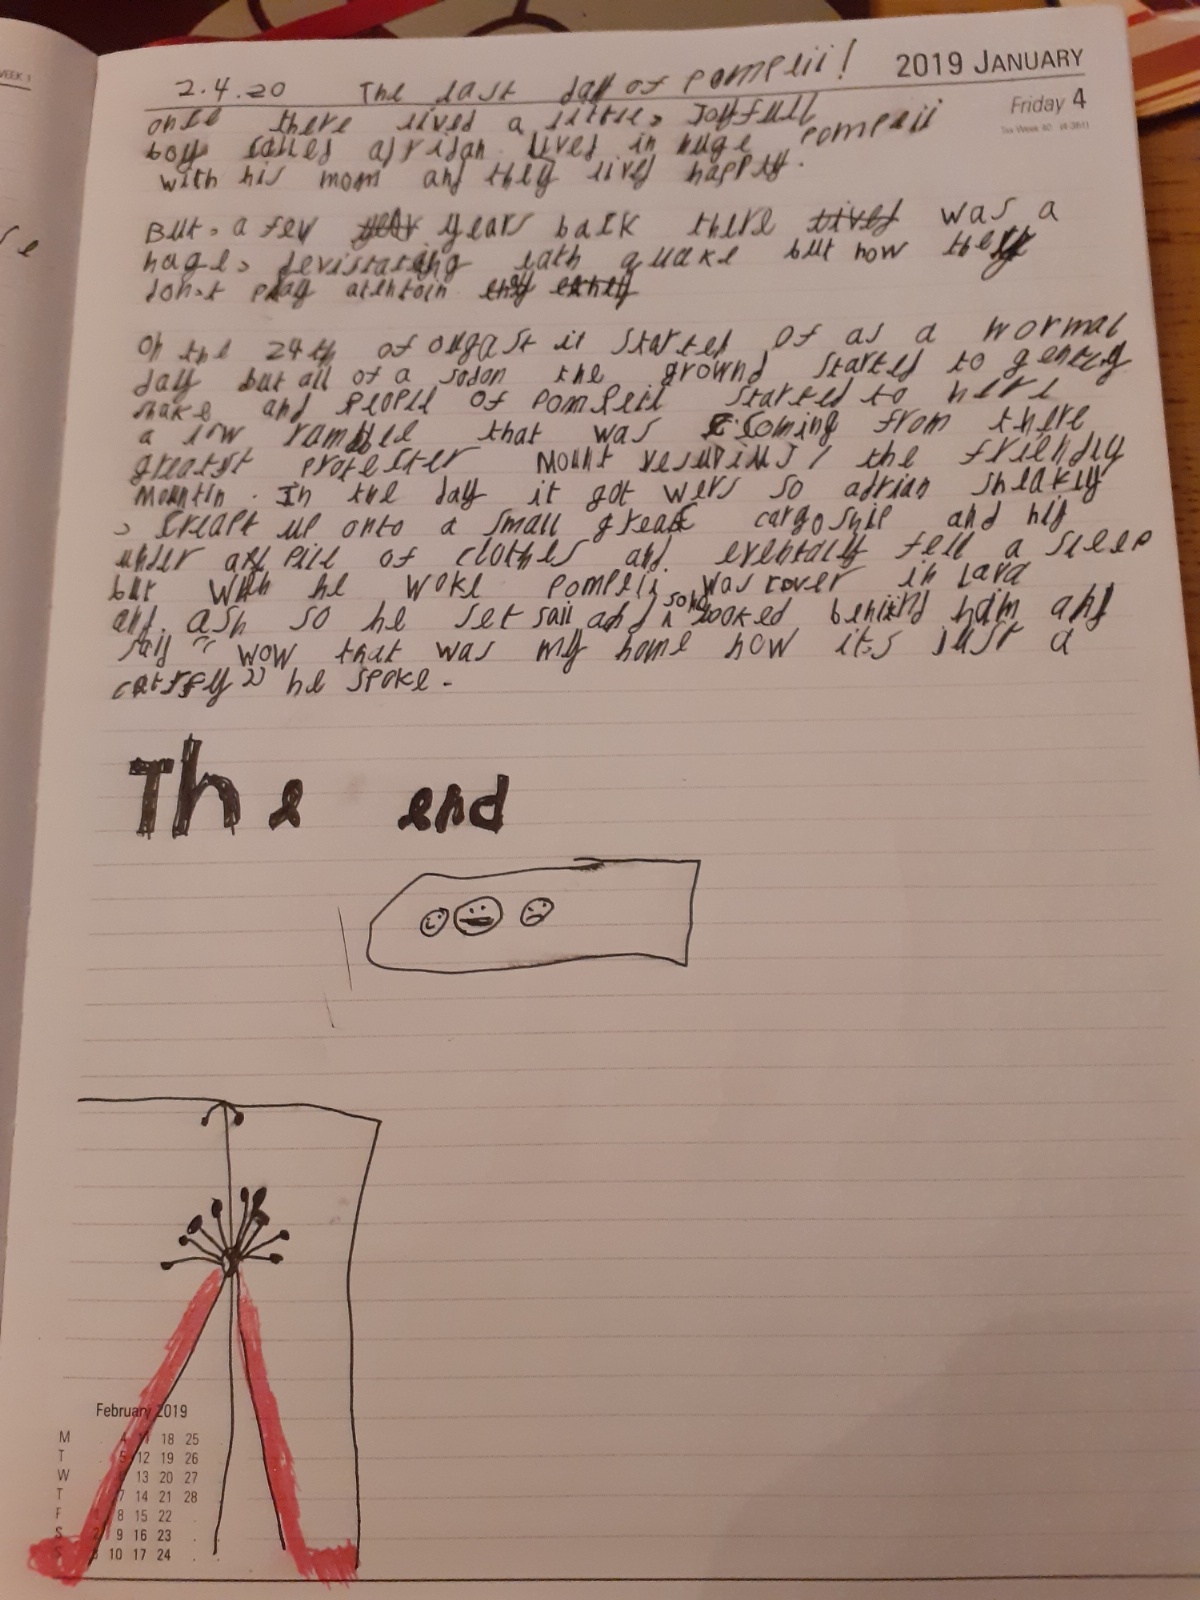 WEEK 1
2019 JANUARY
Friday 4
2.4.20 The last day of Pompeii!
once there lived a little, Joyfull
boy called adridan lived in huge Pompeii
with his mom and they lived happly.
But, a few years back there was a
huge, devistating eath quake but now they
don't pay atentoin
On the 24th of ougast it started of as a normal
day but all of a sodon the grownd started to gently
shake and people of Pompeii started to here
a low rambel that was coming from there
greatst protester Mount vesuvius, the friendly
mountin. In the day it got wers so adrian sneakly
, creapt up onto a small greak cargo ship and hid
under a pile of clothes and eventaly fell a sleep
but when he woke Pompeii was cover in lava
and ash so he set sail and looked behind him and
said " wow that was my home now it's just a
" he spoke.
The end
February 2019
M 4 11 18 25
T 5 12 19 26
W 13 20 27
T 7 14 21 28
F 8 15 22
S 2 9 16 23
S 3 10 17 24